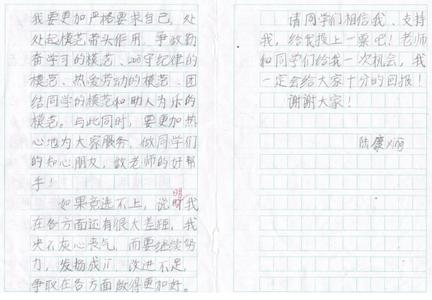 我要更加严格要求自己,处
处起模范带头作用,争做勤
奋学习的模范、遵守纪律的
模范、热爱劳动的模范、团
结同学的模范和助人为乐的
模范。与此同时,要更加热
心地为大家服务,做同学们
的知心朋友,做老师的好帮
手!
如果竞选不上,说明我
在各方面还有很大差距,我
决不灰心丧气,而要继续努
力,发扬成,改进不足,
争取在各方面做得更加好。
请同学们相信我、支持
我,给我投上一票吧!老师
和同学们给我一次机会,我
一定会给大家十分的回报!
谢谢大家!
陆